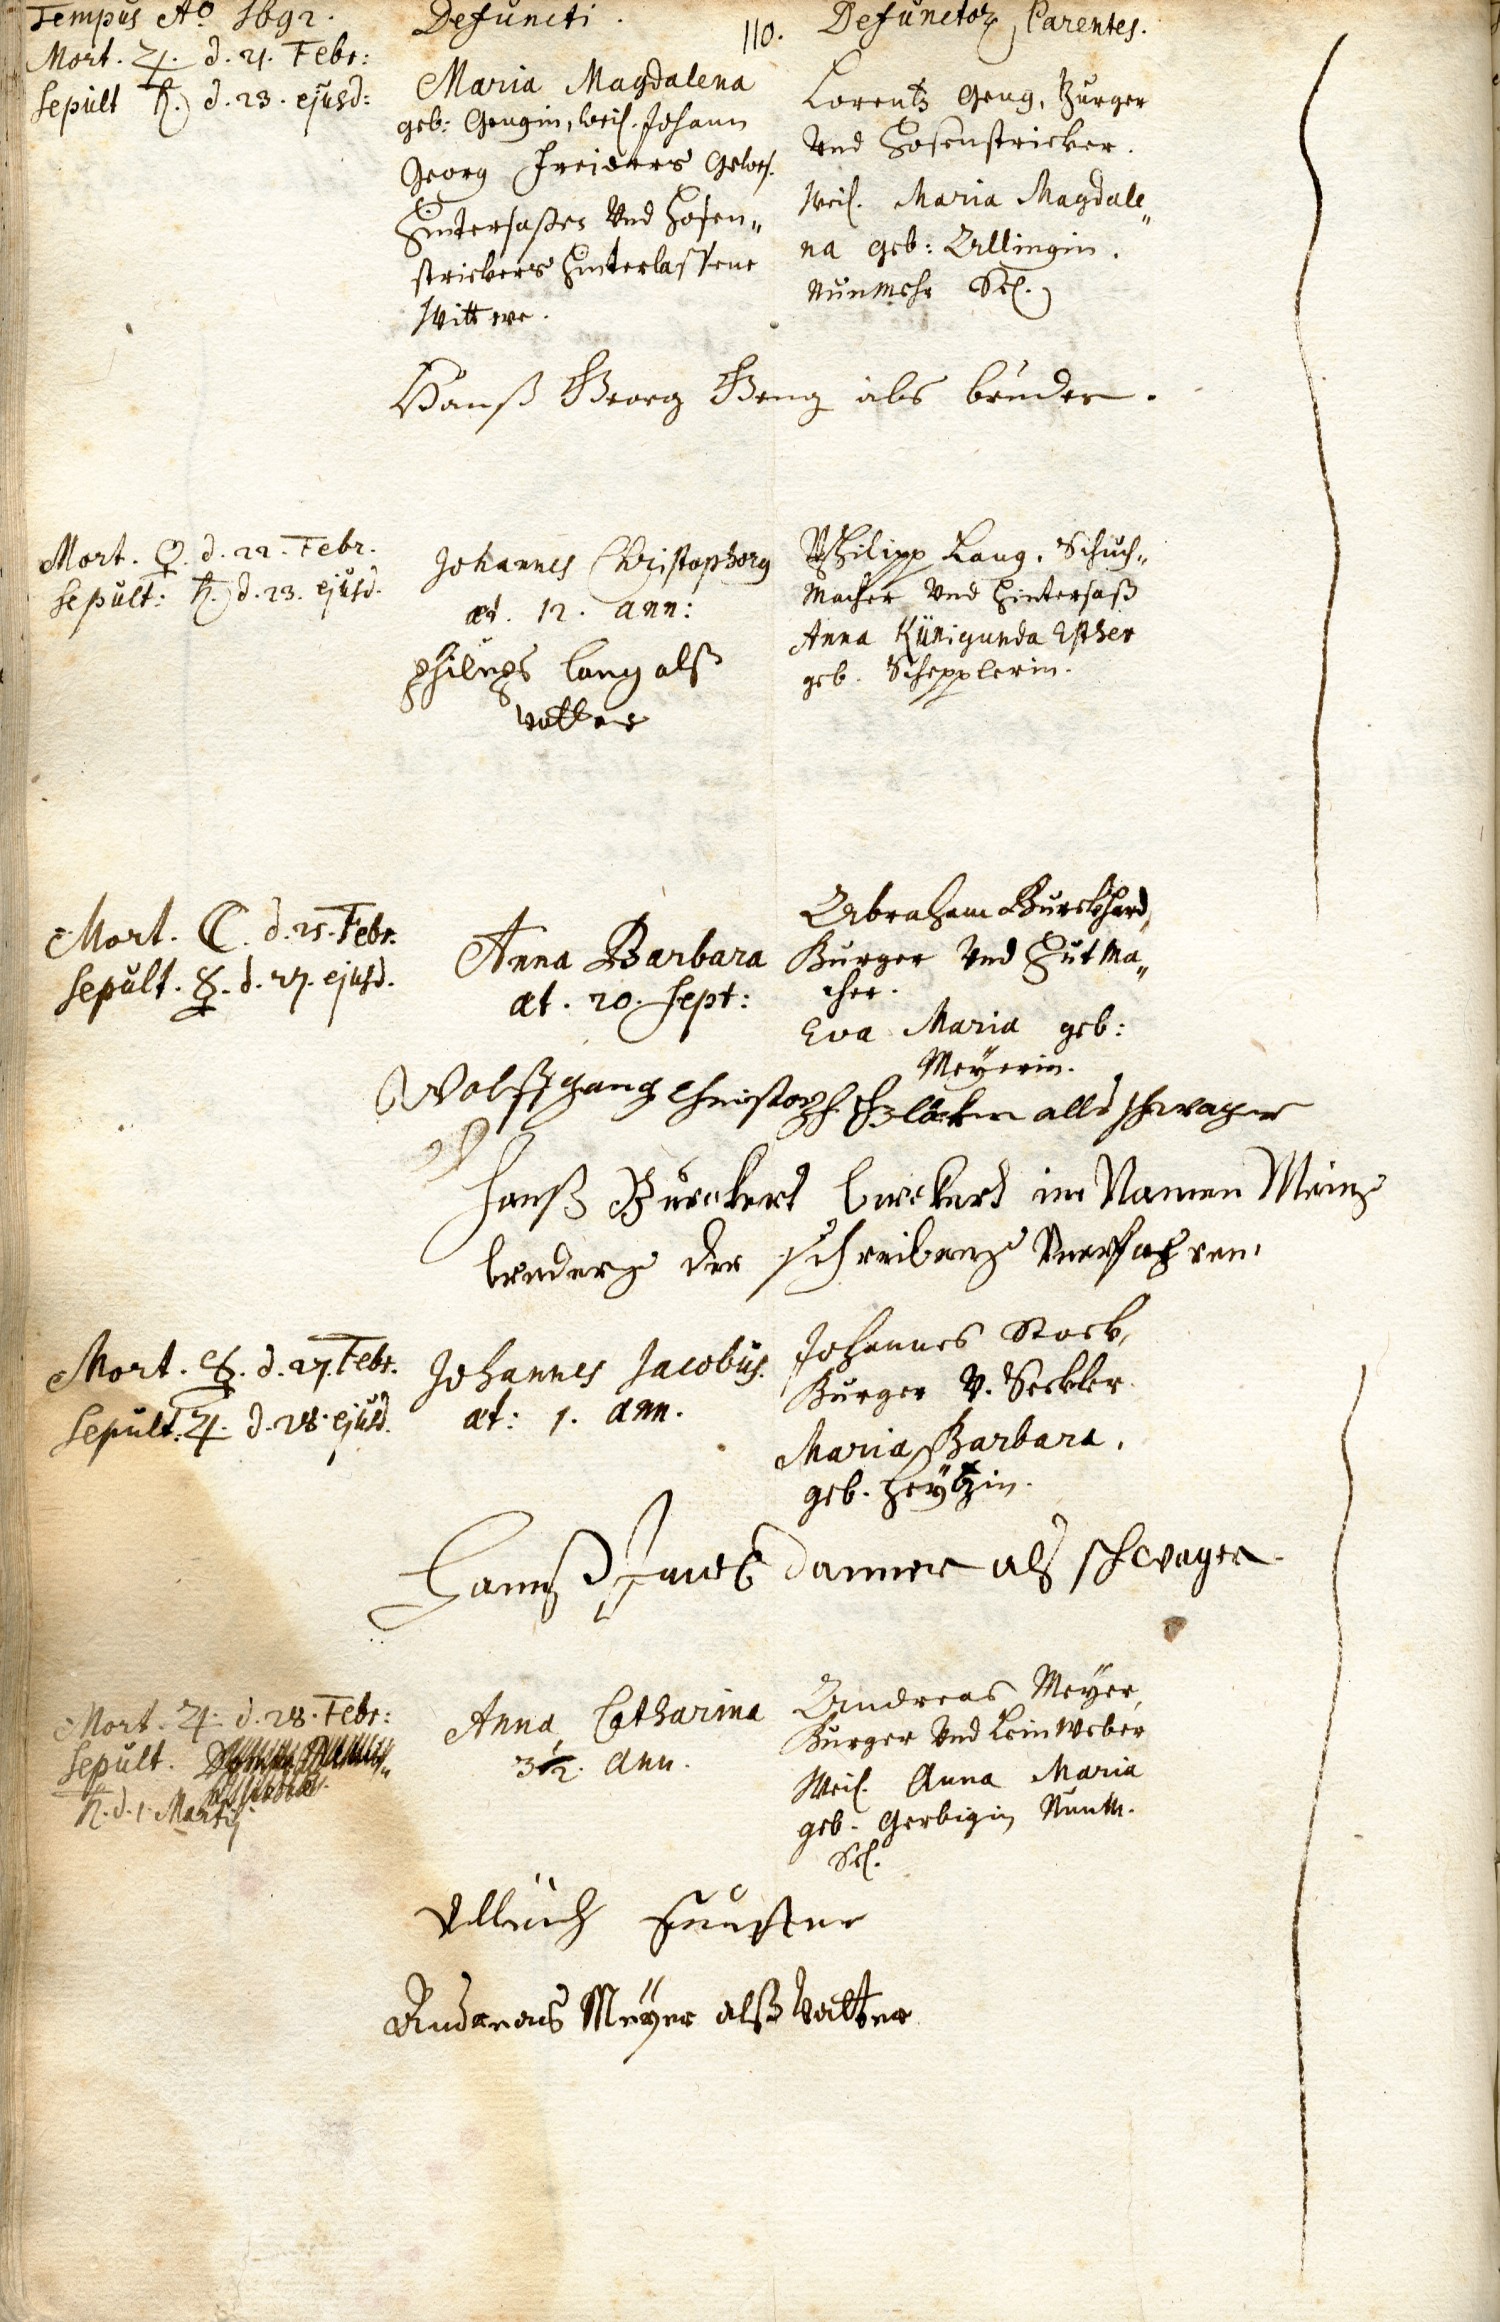 Tempus Aõ 1692.
Defuncti.
110.
Defunctor, Parentes.
Mort. ♃. d. 21. Febr:
Sepult ♄. d. 23. ejusd:
Maria Magdalena
geb: Gengin, weil. Johann
Georg Gewes.
Hintersaßes Vnd Hosen„
strickers hinterlassene
Wittwe.
Lorentz Geng, burger
Vnd Hosenstricker.
Weil. Maria Magdale„
na geb: Ullingin.
nunmehr Sel.
Hanß Georg Geng als bruder.
Mort. ♀. d. 22. Febr.
Sepult: ♄. d. 23. ejusd.
Johannes Christophorg
æt. 12. ann:
Philipp Lang, Schuch„
macher Vnd Hintersaß
Anna Künigunda Esther
geb. Schepplerin.
philips lang alß
vatter
Mort. ☾. d. 25. Febr.
Sepult. ☿. d. 27. ejusd.
Anna Barbara
æt. 20. Sept:
Abraham Burckhard,
Burger Vnd Hutma„
cher.
Eva Maria geb:
Meÿerin.
Wolffgang Christoph alls schwager
Hanß Burckert burckert im Namen Meins
bruders der schreibens Vnerfahren.
Mort. ☿. d. 27. Febr.
Sepult. ♃. d. 28. ejusd.
Johannes Jacobus.
æt: 1. ann.
Johannes Stock,
Burger V. Seckler.
Maria Barbara,
geb. Heÿtzin.
Hannß Jacob Danner als schwager
Mort. ♃. d. 28. Febr:
Sepult.
♄. d. 1. Martij.
Anna Catharina
3 1/2. ann.
Andreas Meÿer,
Burger Vnd Leinweber
Weil. Anna Maria
geb. Gerbigin Nunm.
Sel.
Ullrich
Andreas Meÿer alß vatter